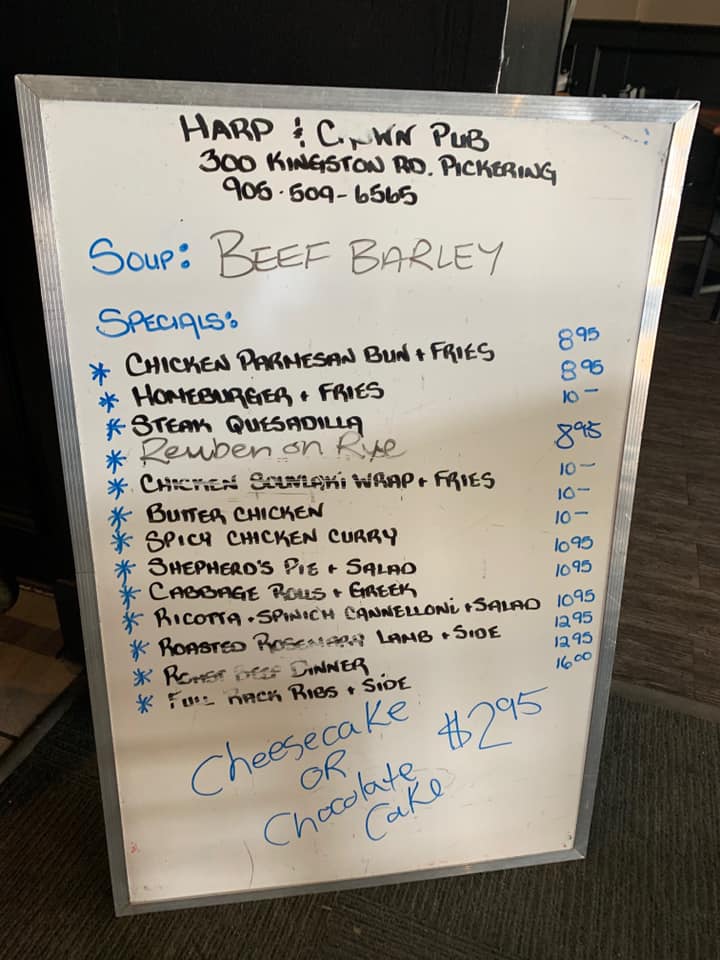 HARP & CROWN PUB
300 KINGSTON RD. PICKERING
905-509-6565
SOUP: BEEF BARLEY
SPECIALS:
* CHICKEN PARMESAN BUN + FRIES 8.95
* HOMEBURGER + FRIES 8.95
* STEAK QUESADILLA 10-
* Reuben on Rye 8.95
* CHICKEN SOUVLAKI WRAP + FRIES 10-
* BUTTER CHICKEN 10-
* SPICY CHICKEN CURRY 10-
* SHEPHERD'S PIE + SALAD 10.95
* CABBAGE ROLLS + GREEK 10.95
* RICOTTA + SPINICH CANNELLONI + SALAD 10.95
* ROASTED ROSEMARY LAMB + SIDE 12.95
* ROAST BEEF DINNER 12.95
* FULL RACK RIBS + SIDE 16.00
Cheesecake $2.95
OR
Chocolate
Cake